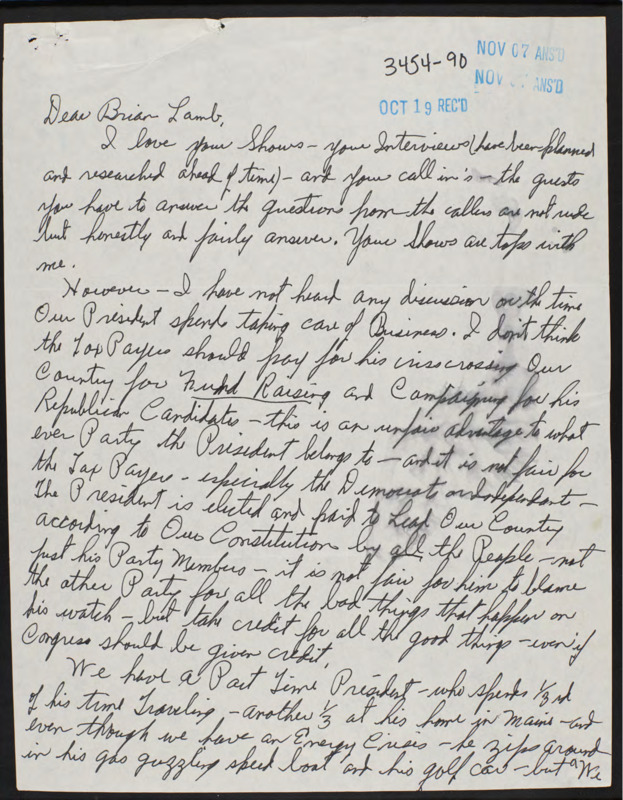 3454-90
NOV 07 ANS'D
NOV 07 ANS'D
OCT 19 REC'D
Dear Brian Lamb,
I love your Shows - your Interviews (have been planned
and researched ahead of time) - and your call in's - the guests
you have to answer the questions from the callers are not rude
but honestly and fairly answer. Your Shows are tops with
me.
However - I have not heard any discussion on the time
Our President spends taking care of Business. I don't think
the Tax Payers should pay for his crisscrossing Our
Country for Fund Raising and Campaigning for his
Republican Candidates - this is an unfair advantage to what
ever Party the President belongs to - and it is not fair for
the Tax Payers - especially the Democrats or Independent -
The President is elected and paid to Lead Our Country
according to Our Constitution by all the People - not
just his Party Members - it is not fair for him to blame
the other Party for all the bad things that happen on
his watch - but take credit for all the good things - even if
Congress should be given credit.
We have a Part Time President - who spends 1/3 rd
of his time Traveling - another 1/3 at his home in Maine - and
even though we have an Energy Crisis - he zips around
in his gas guzzling speed boat and his golf car - but "We